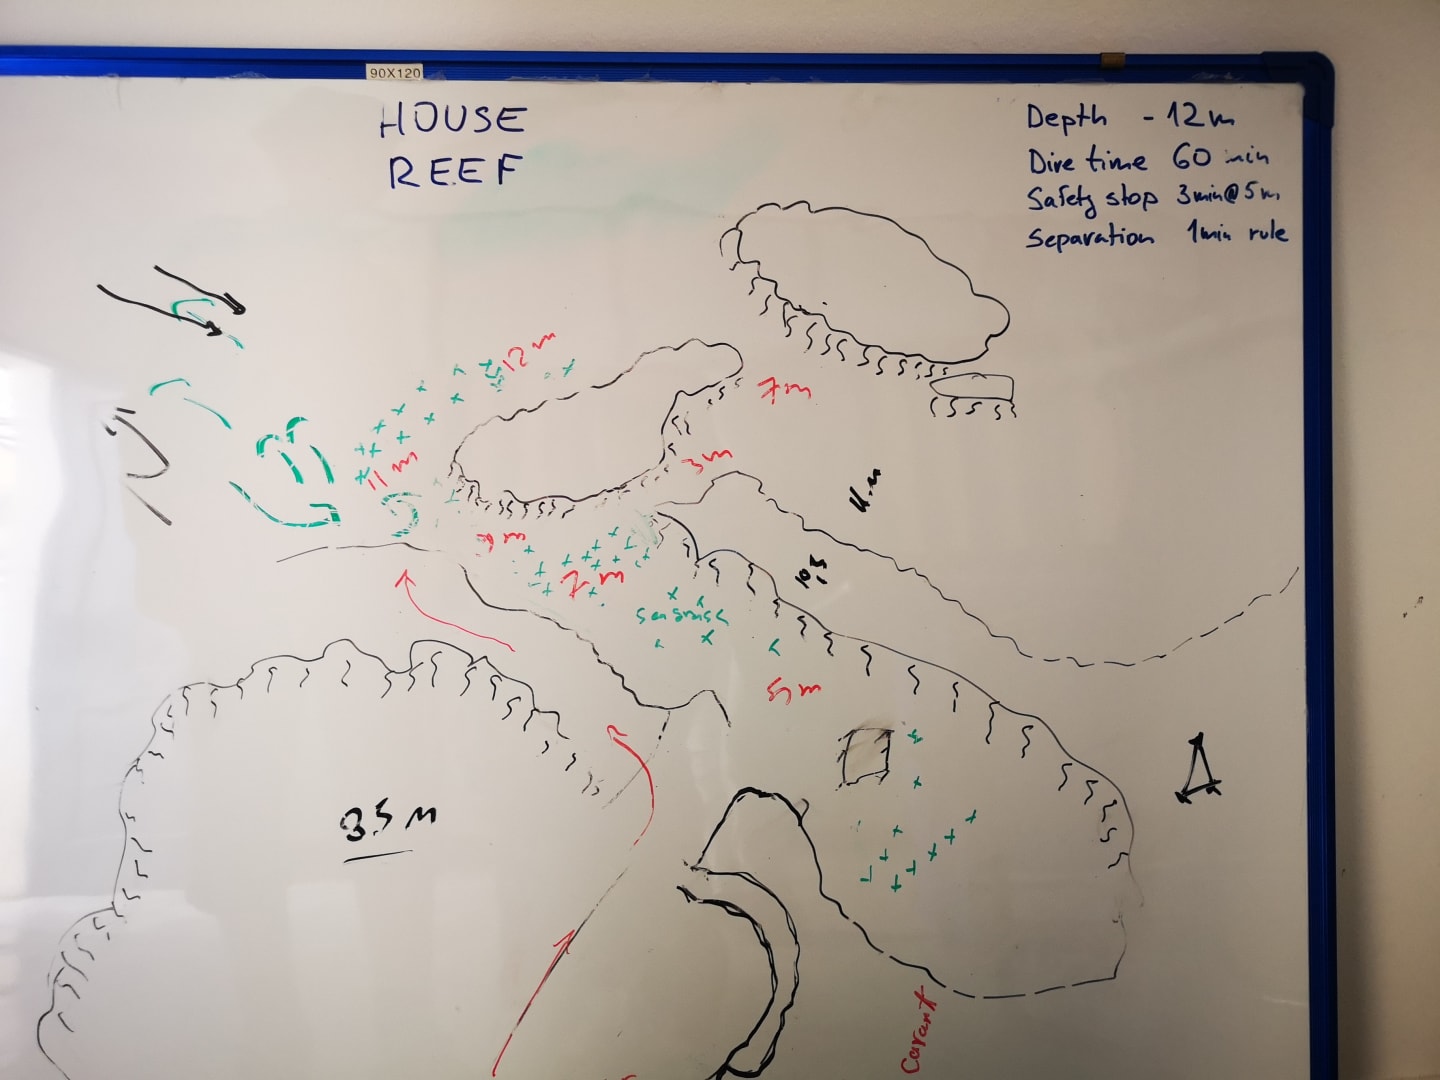 90X120
HOUSE
REEF
Depth - 12m
Dive time 60 min
Safety stop 3min@5m
Separation 1min rule
12m
7m
11m
3m
7m
5m
35m
Curant